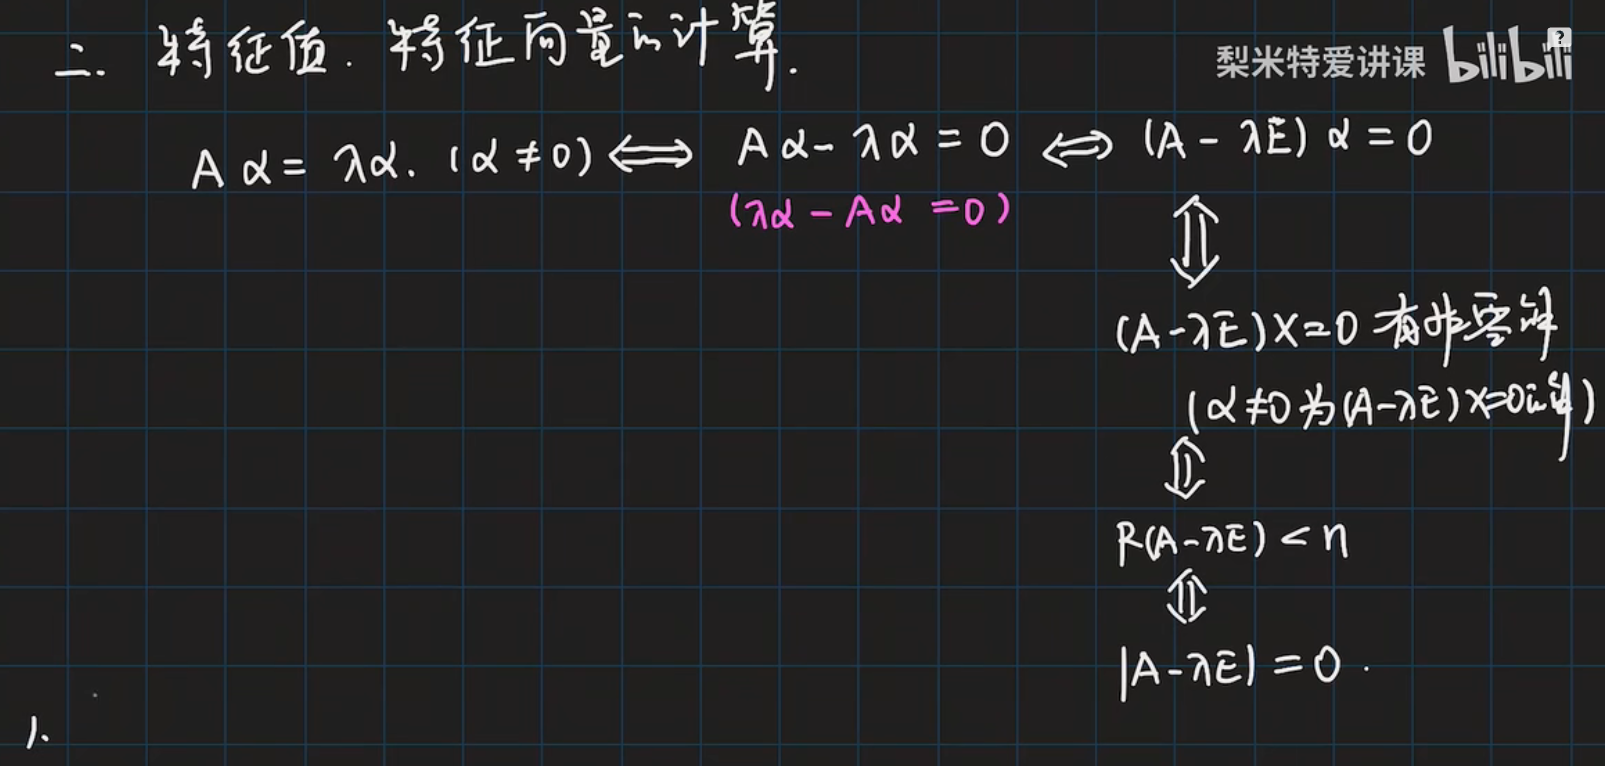 二. 特征值. 特征向量的计算.
梨米特爱讲课 bilibili
Aα = λα. (α ≠ 0) ⟺ Aα - λα = 0 ⟺ (A - λE) α = 0
(λα - Aα = 0)
⇕
(A - λE) X = 0 有非零解
(α ≠ 0 为 (A - λE) X = 0 的解)
⇕
R(A - λE) < n
⇕
|A - λE| = 0.
1.